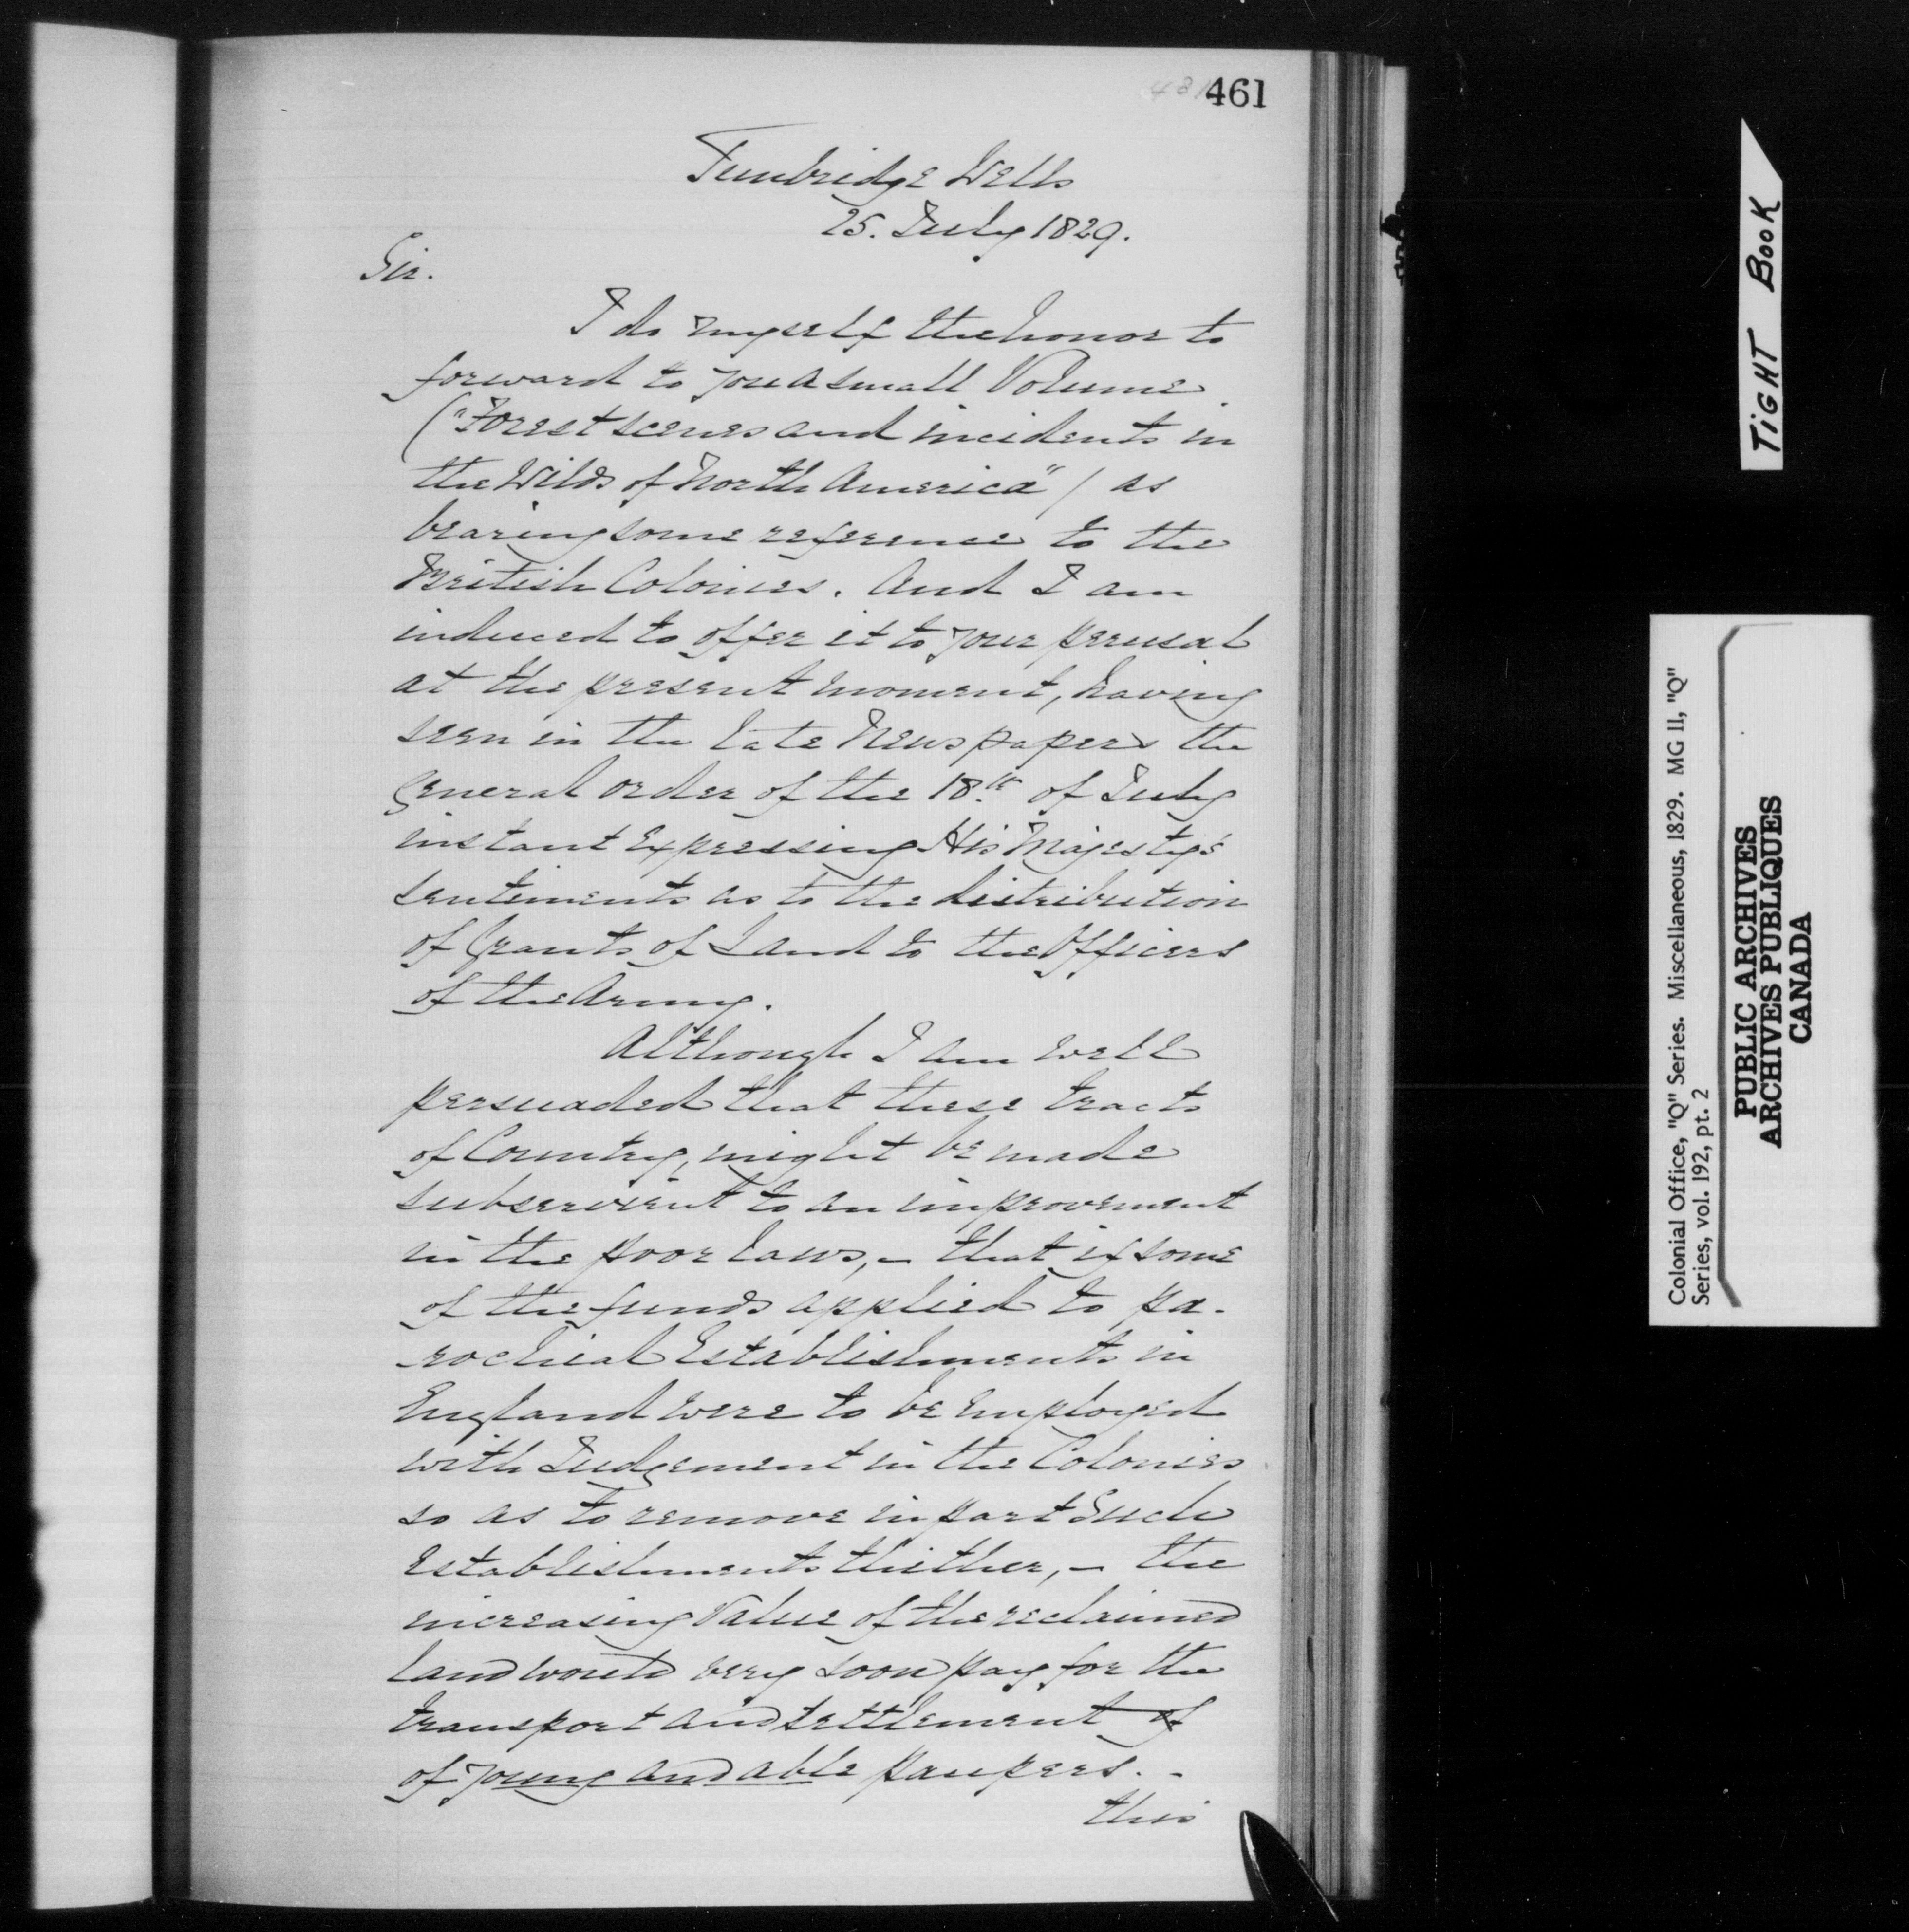 461
Tunbridge Wells
25. July 1829.
Sir.
I do myself the honor to
forward to you a small Volume
("Forest scenes and incidents in
the Wilds of North America") as
bearing some reference to the
British Colonies. And I am
induced to offer it to your perusal
at the present moment, having
seen in the late Newspapers the
General order of the 18th of July
instant expressing His Majesty's
sentiments as to the distribution
of Grants of Land to the Officers
of the Army.
Although I am well
persuaded that these tracts
of Country, might be made
subservient to an improvement
in the poor laws, - that if some
of the funds applied to pa-
rochial Establishments in
England were to be employed
with Judgement in the Colonies
so as to remove in part such
Establishments thither, - the
increasing Value of the reclaimed
land would very soon pay for the
transport and settlement of
of young and able paupers. -
this
TIGHT BOOK
Colonial Office, "Q" Series. Miscellaneous, 1829. MG 11, "Q"
Series, vol. 192, pt. 2
PUBLIC ARCHIVES
ARCHIVES PUBLIQUES
CANADA